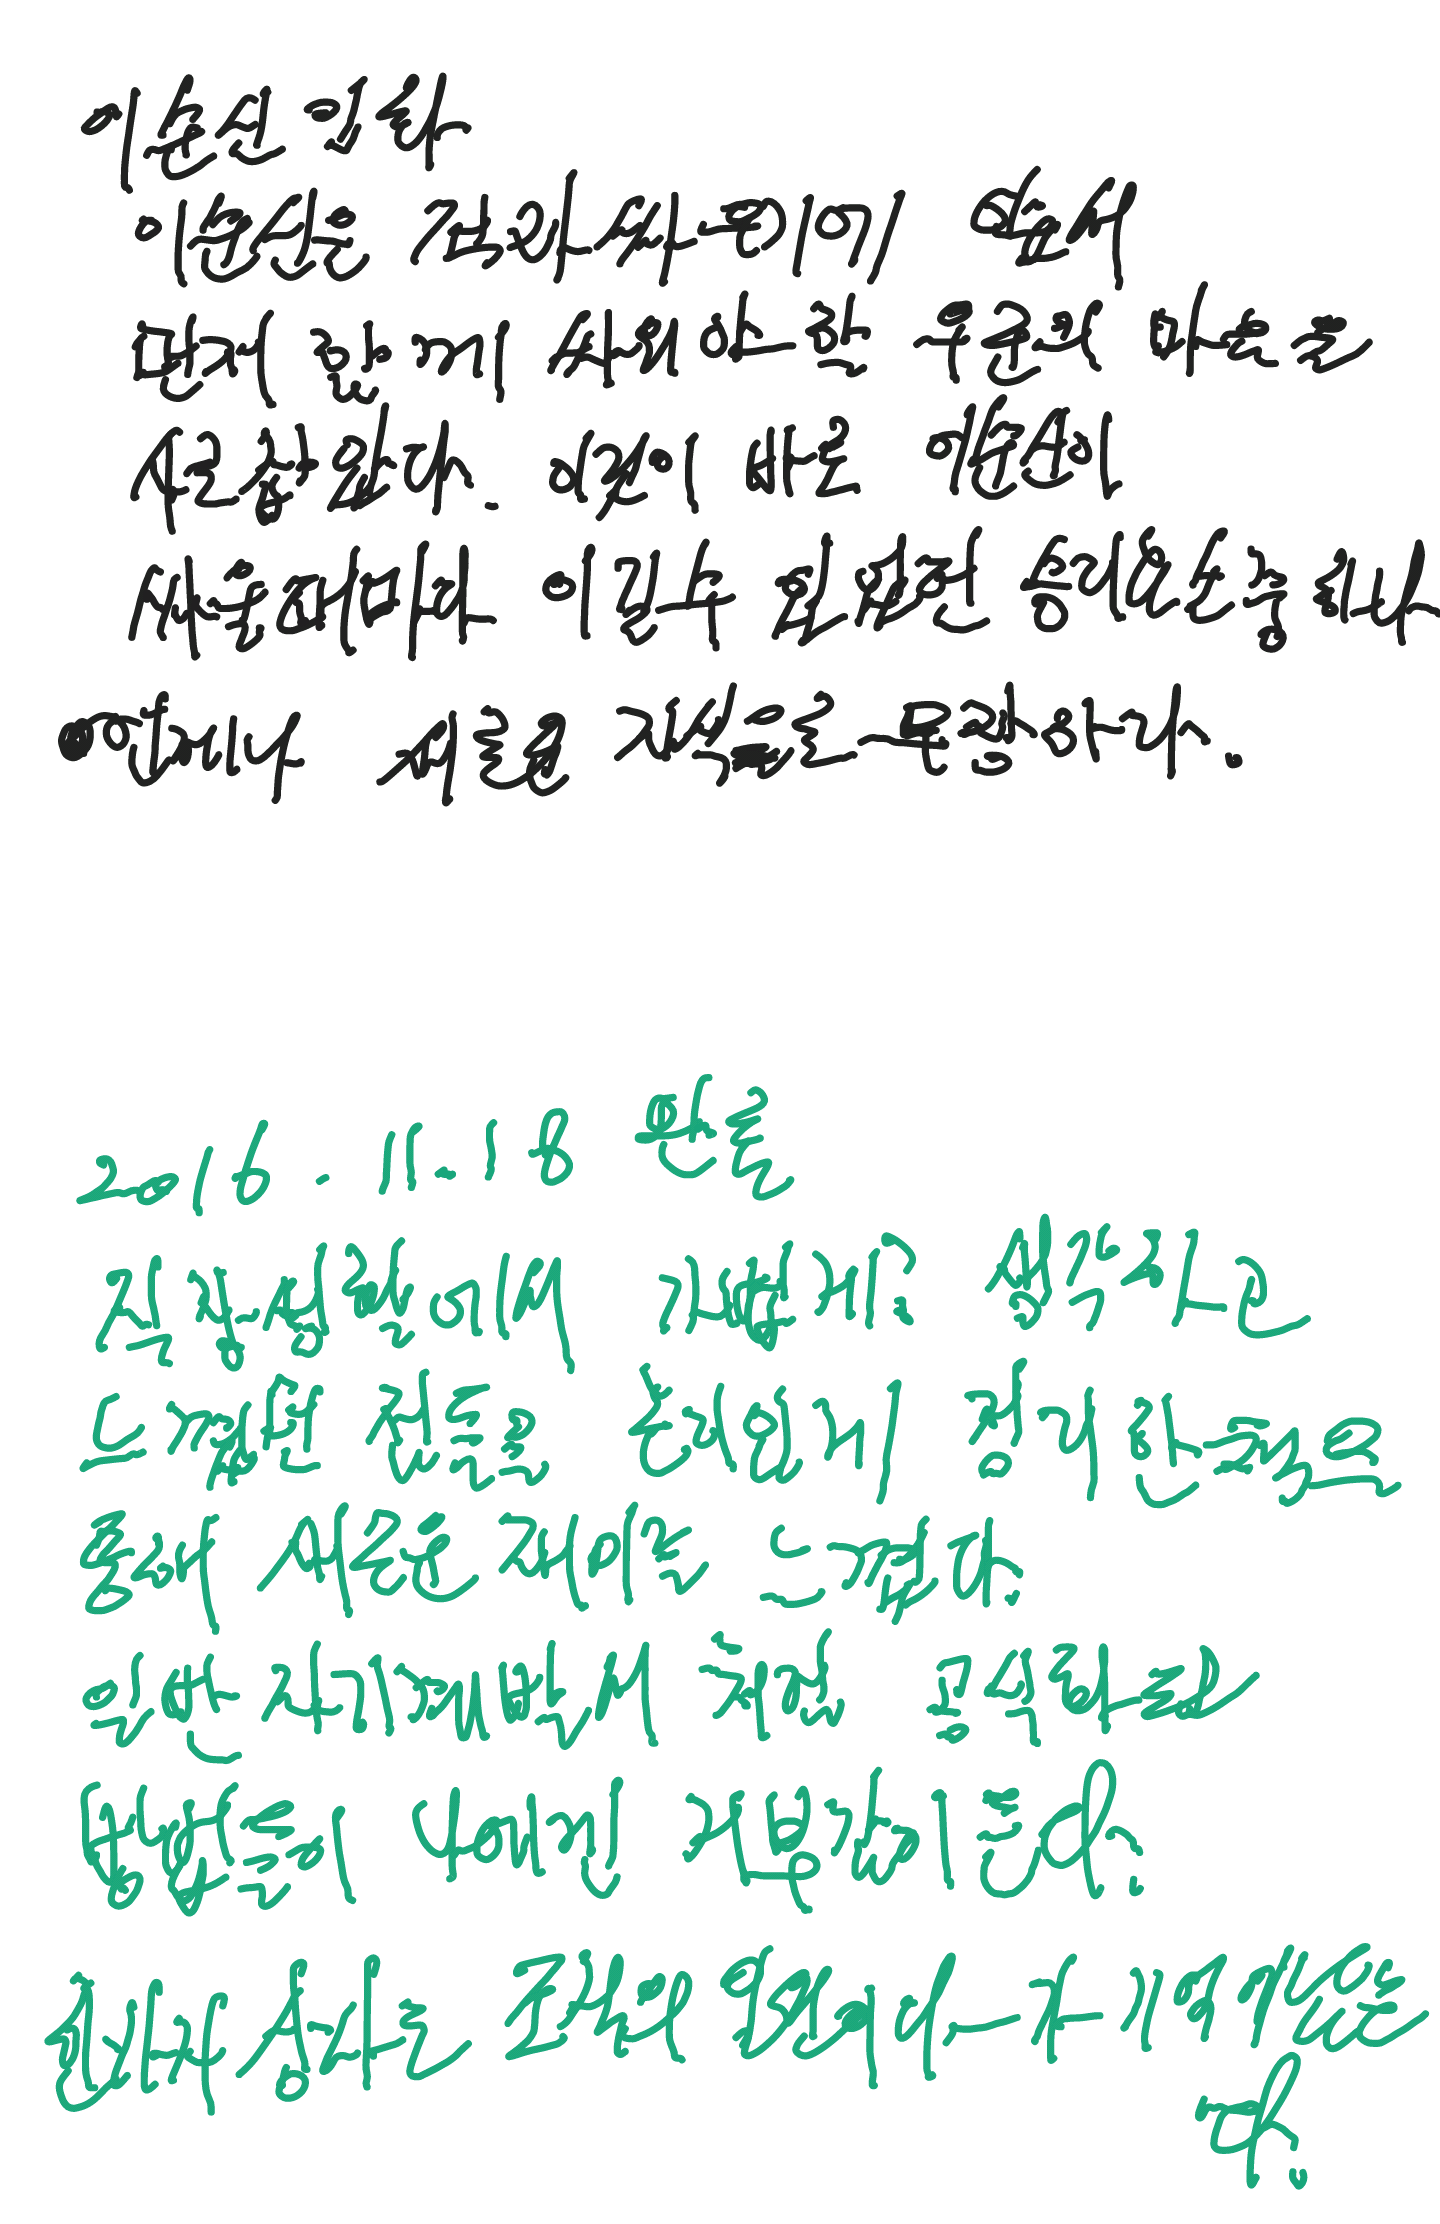 이순신 일화
이순신은 적과 싸우기 앞서
먼저 함께 싸워야 할 우군의 마음을
사로잡았다. 이것이 바로 이순신이
싸울때마다 이길수 있었던 승리요소중 하나
언제나 새로운 지식을 무장하라.
2016.11.18 완료
직장생활에서 가볍게? 생각하고
느꼈던 것들을 흥미있게 정리한 책으로
통해 새로운 재미를 느꼈다.
일반 자기계발서처럼 공식화된
방법들이 나에겐 거부감이 든다.
회사가 성장하는 조직의 일원이나
다.